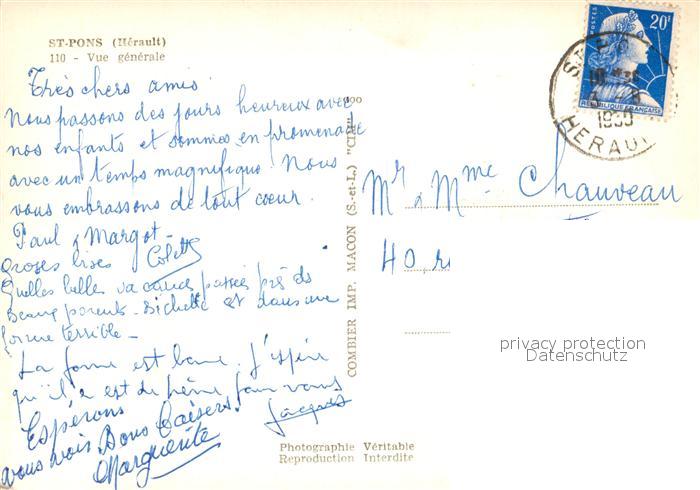 ST-PONS (Hérault)
110 - Vue générale
Très chers amis.
Nous passons des jours heureux avec
nos enfants et sommes en promenade
avec un temps magnifique. Nous
vous embrassons de tout coeur.
Paul & Margot-
Grosses bises Colette
Quelles belles vacances passées près de
Beaux parents. et dans une
forme terrible -
La forme est bonne. J'espère
qu'il en est de même pour vous
Jacques
Espérons
vous voir Bons Baisers.
Marguerite
COMBIER IMP. MACON (S.-et-L.) "CIM"
POSTES 20F
REPUBLIQUE FRANÇAISE
HERAULT
Mr & Mme Chauveau
40, r
privacy protection
Datenschutz
Photographie Véritable
Reproduction Interdite